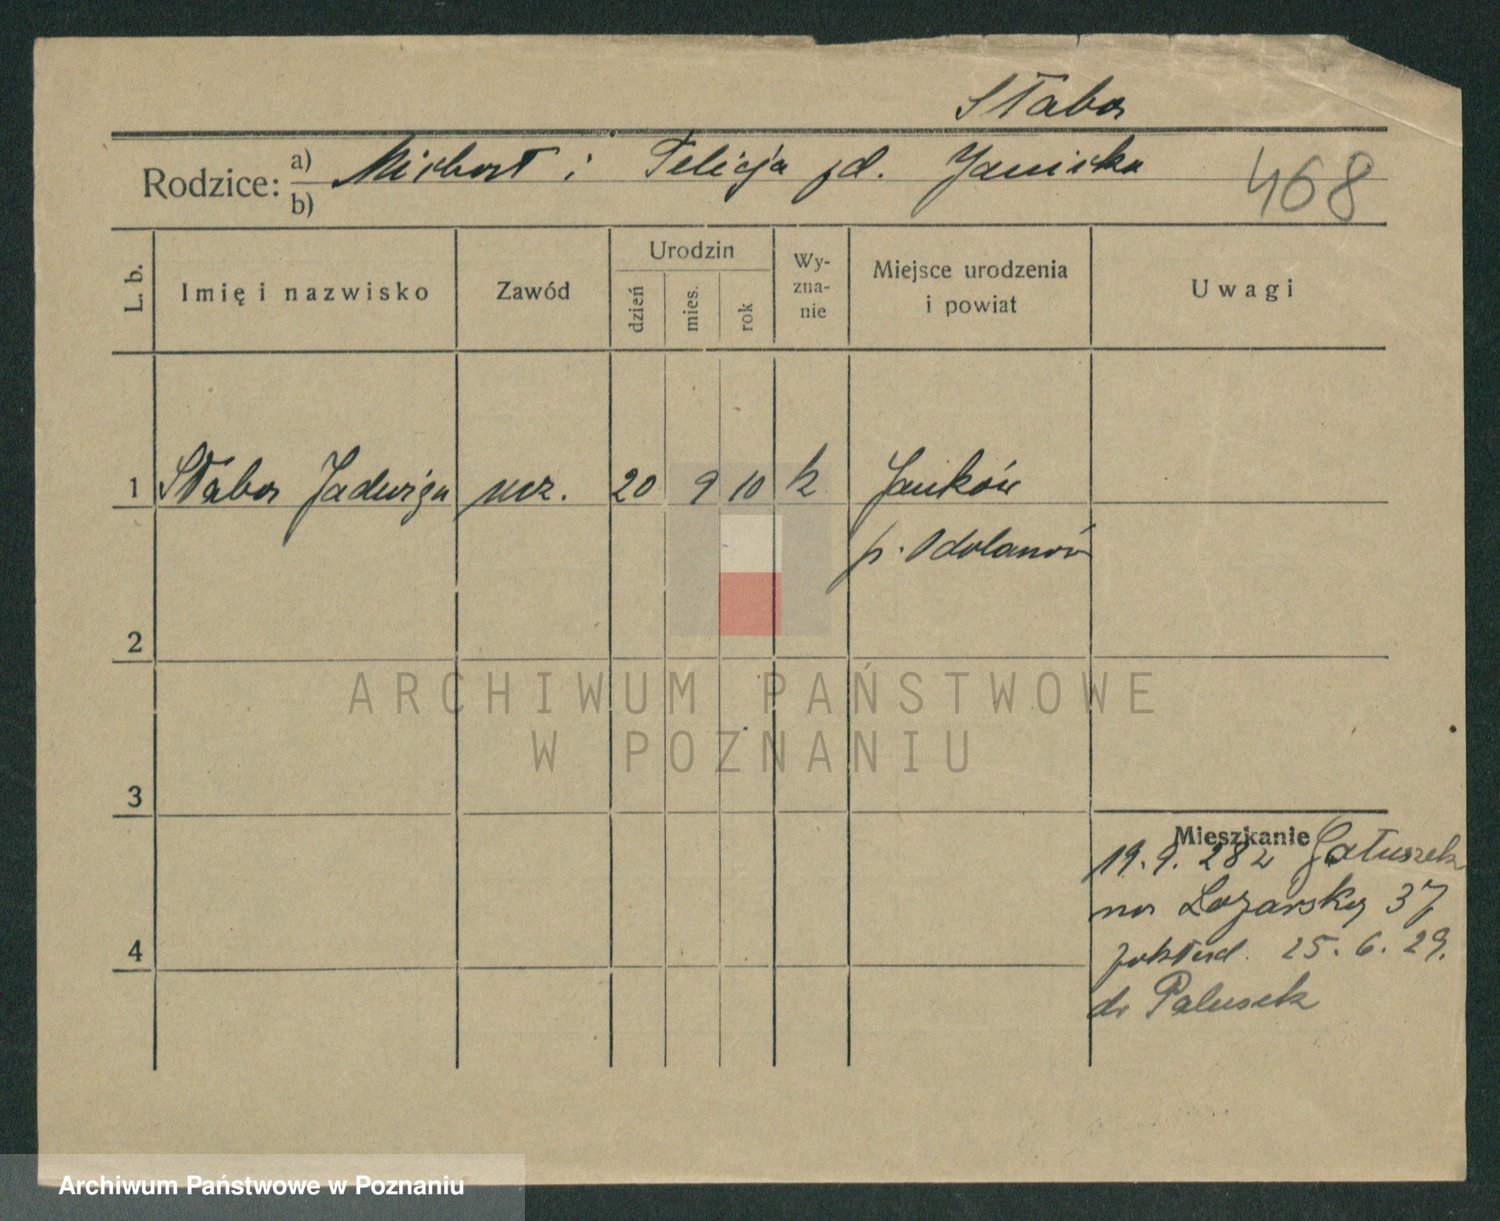 Słabos
Rodzice: a) Michał i Felicja
b)
468
L. b.
Imię i nazwisko
Zawód
Urodzin
dzień
mies.
rok
Wy-
zna-
nie
Miejsce urodzenia
i powiat
Uwagi
1 Słabos Jadwiga ucz. 20 9 10 k Janków
p. Odolanów
2
3
4
Mieszkanie
19.9.28 z Gałuszek
na 37
25.6.29.
do Palusek
ARCHIWUM PAŃSTWOWE
W POZNANIU
Archiwum Państwowe w Poznaniu